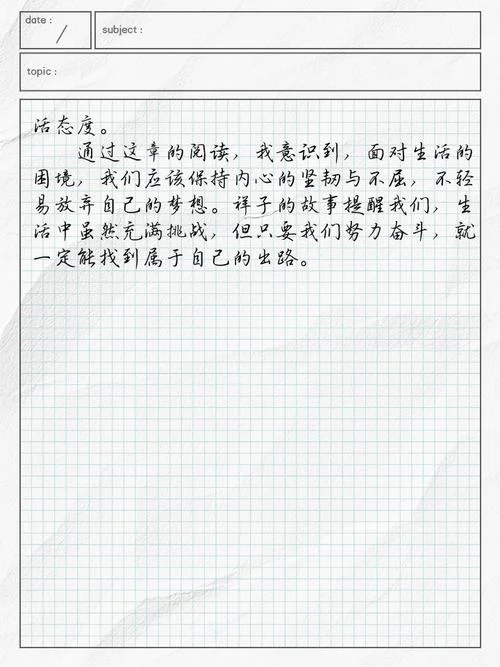 date :
subject :
topic :
活态度。
通过这章的阅读，我意识到，面对生活的
困境，我们应该保持内心的坚韧与不屈，不轻
易放弃自己的梦想。祥子的故事提醒我们，生
活中虽然充满挑战，但只要我们努力奋斗，就
一定能找到属于自己的出路。